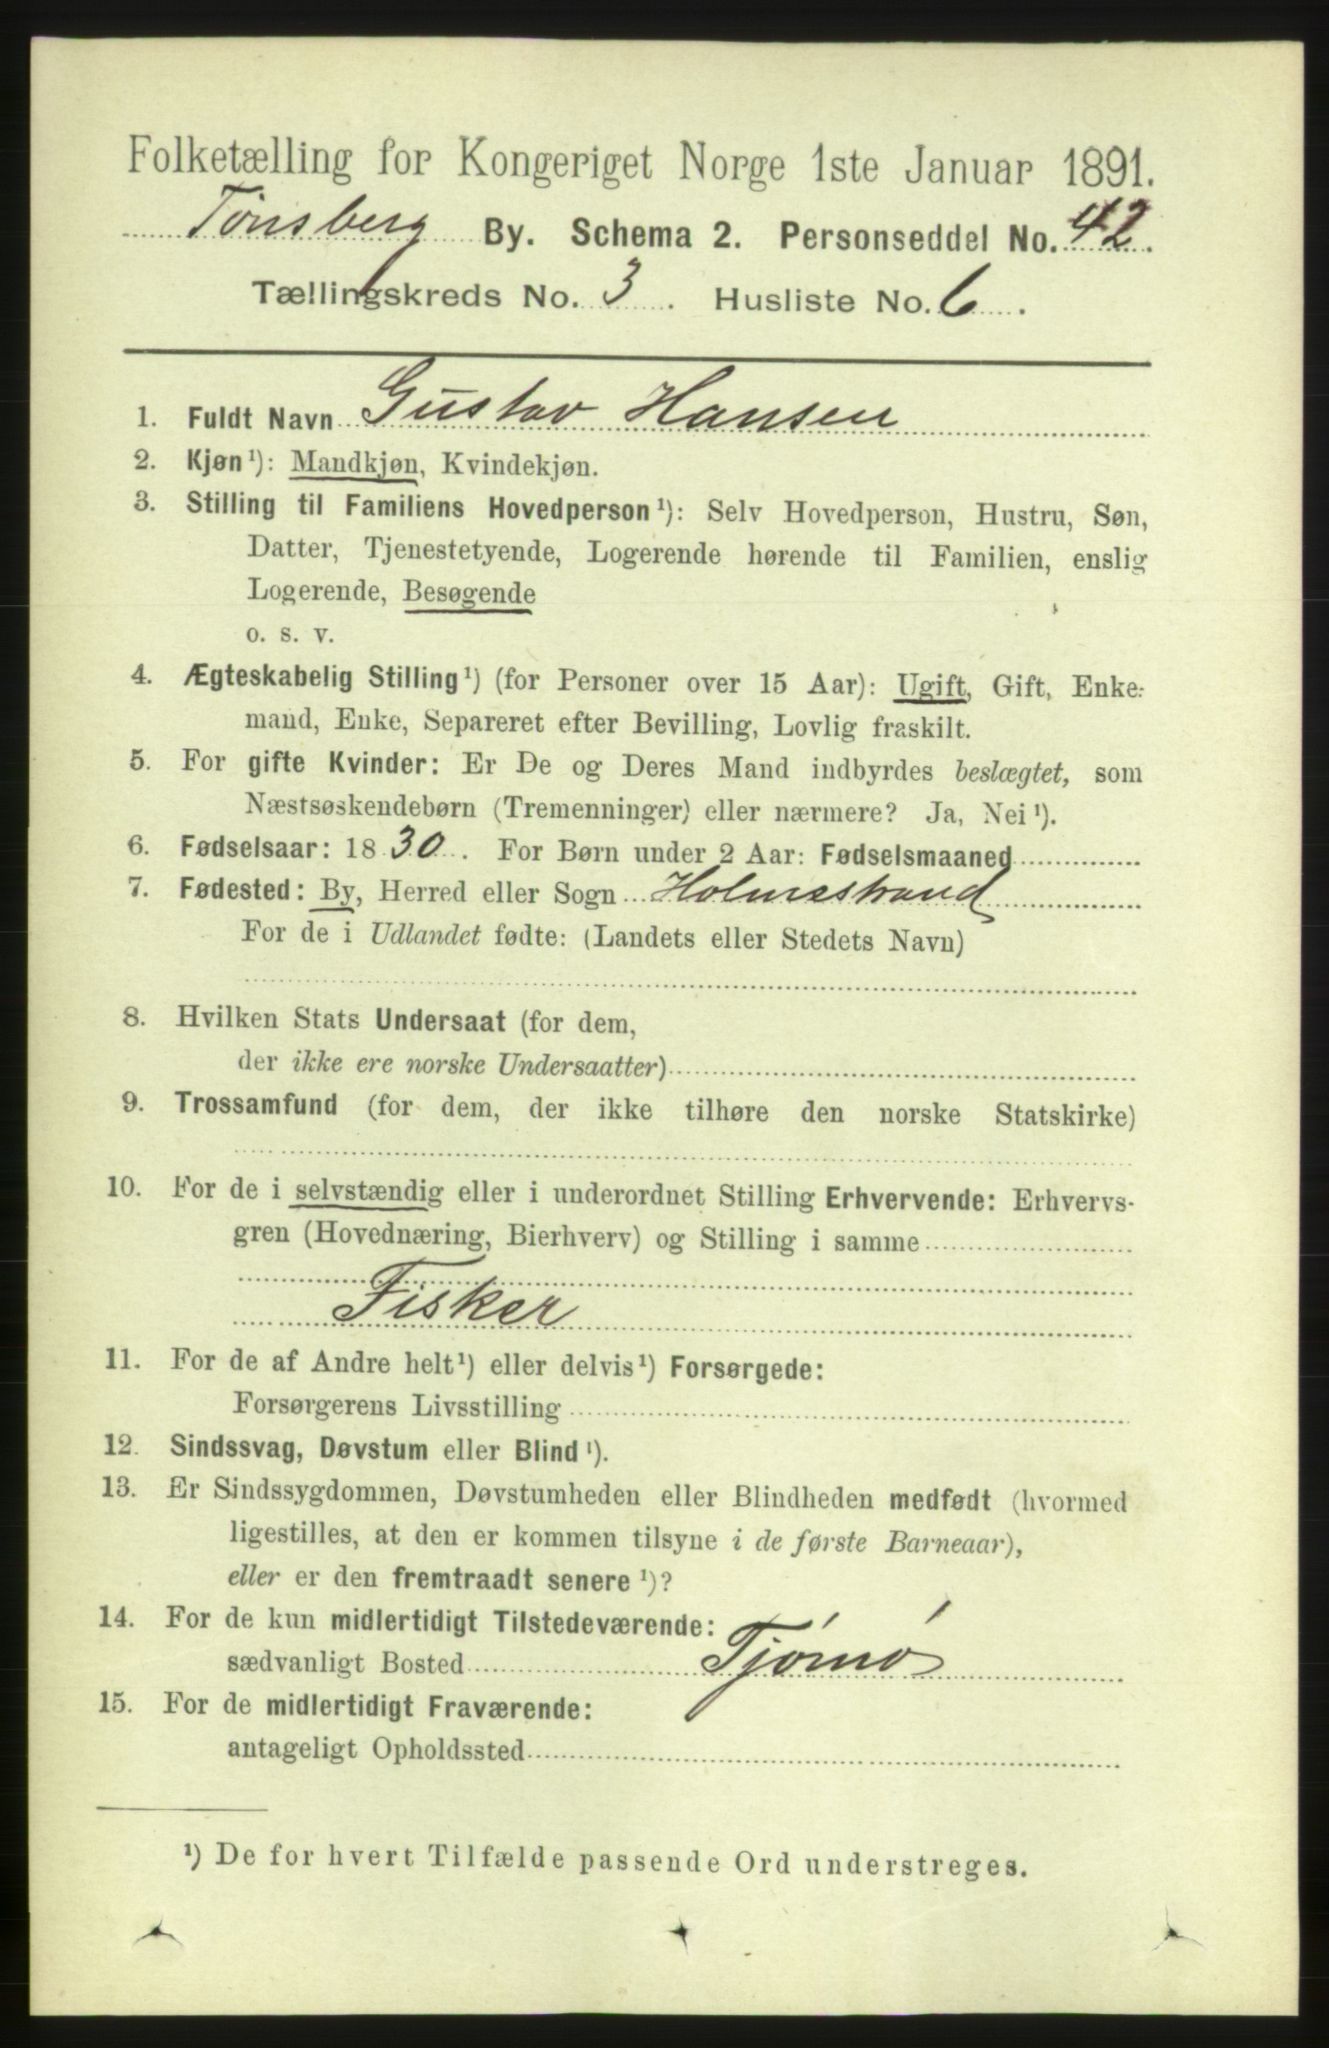 Folketælling for Kongeriget Norge 1ste Januar 1891.
Tønsberg By. Schema 2. Personseddel No. 42.
Tællingskreds No. 3. Husliste No. 6.
1. Fuldt Navn Gustav Hansen
2. Kjøn¹): Mandkjøn, Kvindekjøn.
3. Stilling til Familiens Hovedperson¹): Selv Hovedperson, Hustru, Søn,
Datter, Tjenestetyende, Logerende hørende til Familien, enslig
Logerende, Besøgende
o. s. v.
4. Ægteskabelig Stilling¹) (for Personer over 15 Aar): Ugift, Gift, Enke-
mand, Enke, Separeret efter Bevilling, Lovlig fraskilt.
5. For gifte Kvinder: Er De og Deres Mand indbyrdes beslægtet, som
Næstsøskendebørn (Tremenninger) eller nærmere? Ja, Nei¹).
6. Fødselsaar: 1830. For Børn under 2 Aar: Fødselsmaaned
7. Fødested: By, Herred eller Sogn Holmestrand
For de i Udlandet fødte: (Landets eller Stedets Navn)
8. Hvilken Stats Undersaat (for dem,
der ikke ere norske Undersaatter)
9. Trossamfund (for dem, der ikke tilhøre den norske Statskirke)
10. For de i selvstændig eller i underordnet Stilling Erhvervende: Erhvervs-
gren (Hovednæring, Bierhverv) og Stilling i samme
Fisker
11. For de af Andre helt¹) eller delvis¹) Forsørgede:
Forsørgerens Livsstilling
12. Sindssvag, Døvstum eller Blind¹).
13. Er Sindssygdommen, Døvstumheden eller Blindheden medfødt (hvormed
ligestilles, at den er kommen tilsyne i de første Barneaar),
eller er den fremtraadt senere¹)?
14. For de kun midlertidigt Tilstedeværende:
sædvanligt Bosted Tjømø
15. For de midlertidigt Fraværende:
antageligt Opholdssted
¹) De for hvert Tilfælde passende Ord understreges.